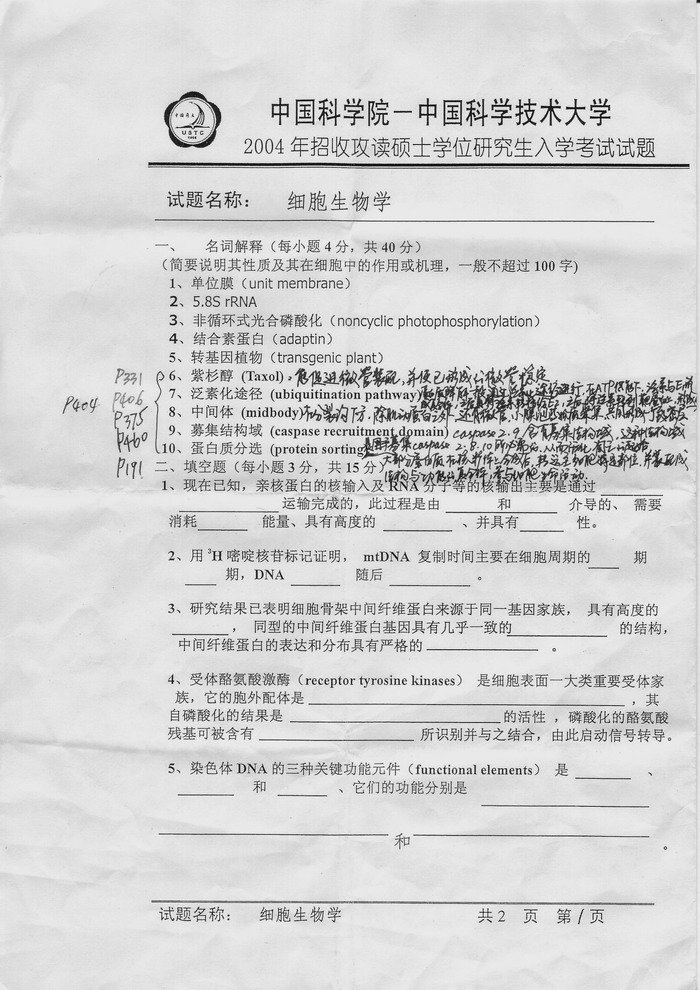 USTC
中国科学院－中国科学技术大学
2004 年招收攻读硕士学位研究生入学考试试题
试题名称： 细胞生物学
一、 名词解释（每小题 4 分，共 40 分）
（简要说明其性质及其在细胞中的作用或机理，一般不超过 100 字)
1、单位膜（unit membrane）
2、5.8S rRNA
3、非循环式光合磷酸化（noncyclic photophosphorylation）
4、结合素蛋白（adaptin）
5、转基因植物（transgenic plant）
P331 6、紫杉醇 (Taxol)
P404 P406 7、泛素化途径 (ubiquitination pathway)
P375 8、中间体 (midbody)
P460 9、募集结构域 (caspase recruitment domain)
P191 10、蛋白质分选 (protein sorting)
二、填空题（每小题 3 分，共 15 分）
1、现在已知，亲核蛋白的核输入及 RNA 分子等的核输出主要是通过
运输完成的，此过程是由 和 介导的、 需要
消耗 能量、具有高度的 、并具有 性。
2、用 ³H 嘧啶核苷标记证明， mtDNA 复制时间主要在细胞周期的 期
期，DNA 随后 。
3、研究结果已表明细胞骨架中间纤维蛋白来源于同一基因家族， 具有高度的
， 同型的中间纤维蛋白基因具有几乎一致的 的结构，
中间纤维蛋白的表达和分布具有严格的 。
4、受体酪氨酸激酶（receptor tyrosine kinases） 是细胞表面一大类重要受体家
族，它的胞外配体是 ，其
自磷酸化的结果是 的活性 ，磷酸化的酪氨酸
残基可被含有 所识别并与之结合，由此启动信号转导。
5、染色体 DNA 的三种关键功能元件（functional elements） 是 、
和 、它们的功能分别是
和 。
试题名称： 细胞生物学 共 2 页 第 1 页